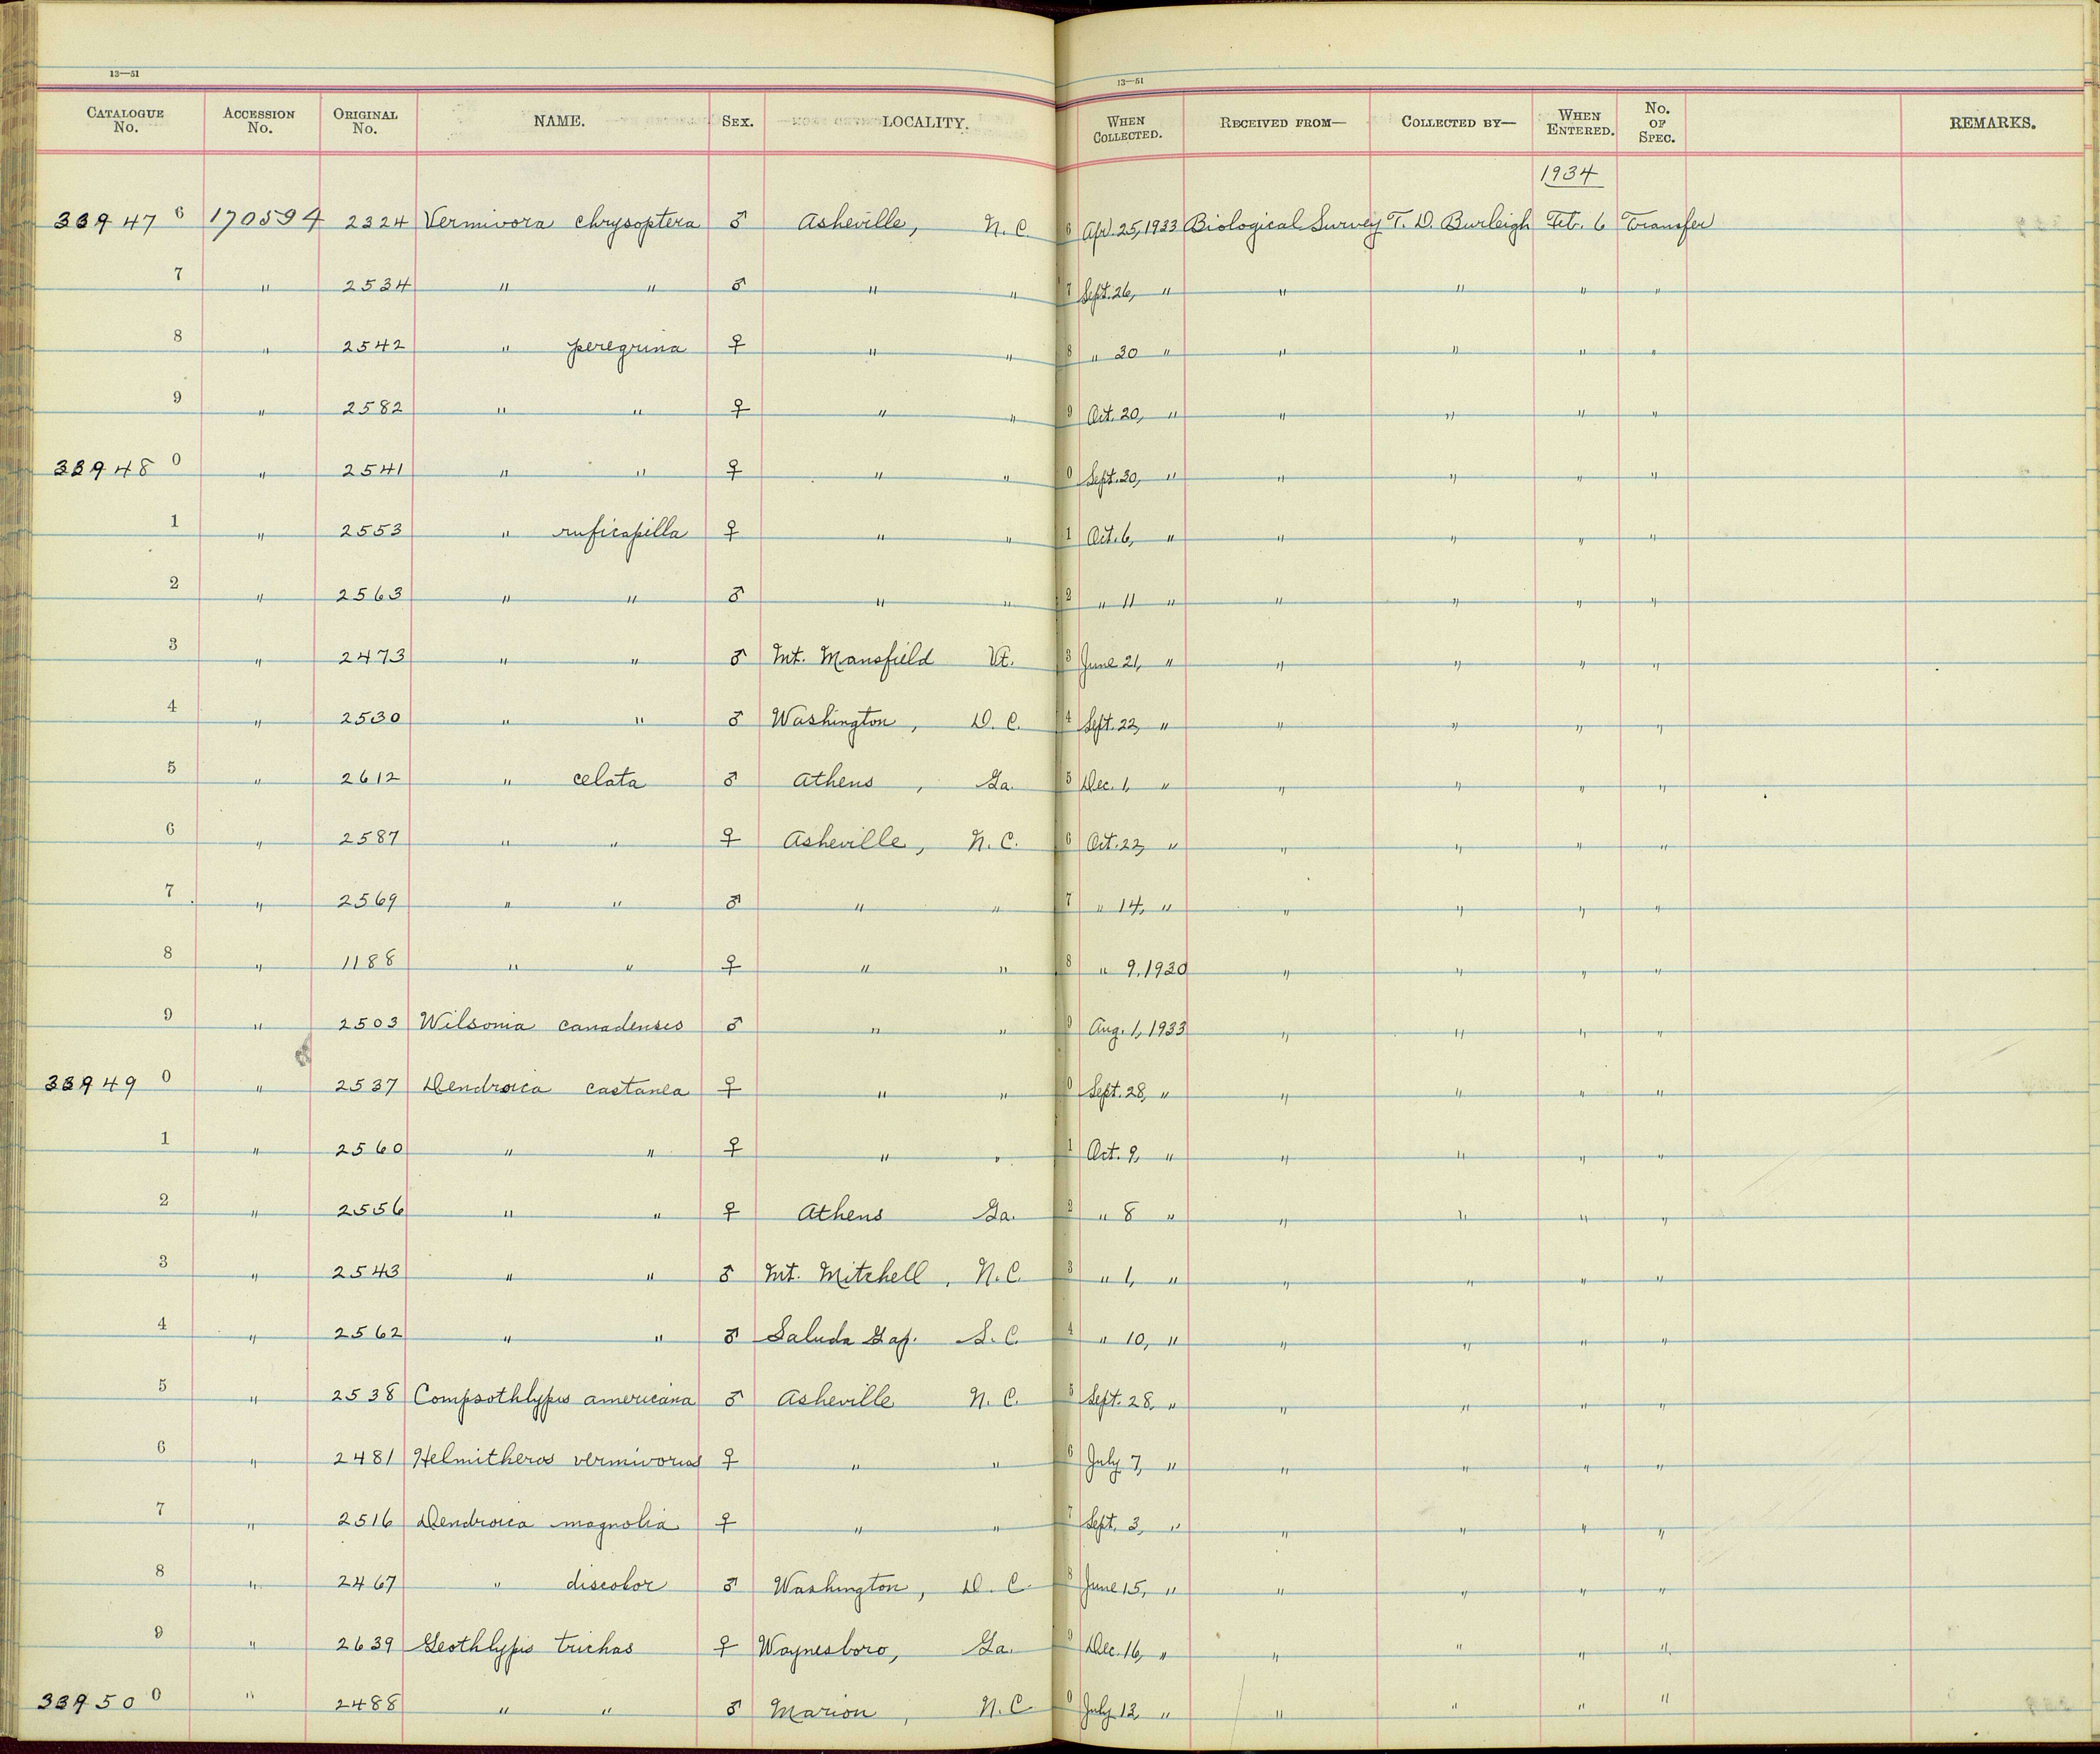 13—51 13—51
CATALOGUE No. ACCESSION No. ORIGINAL No. NAME. SEX. LOCALITY. WHEN COLLECTED. RECEIVED FROM— COLLECTED BY— WHEN ENTERED. No. OF SPEC. REMARKS.
1934
33947 6 170594 2324 Vermivora chrysoptera ♂ Asheville, N. C. 6 Apr. 25, 1933 Biological Survey T. D. Burleigh Feb. 6 Transfer
7 " 2534 " " ♂ " " 7 Sept. 26, " " " " "
8 " 2542 " peregrina ♀ " " 8 " 30 " " " " "
9 " 2582 " " ♀ " " 9 Oct. 20, " " " " "
33948 0 " 2541 " " ♀ " " 0 Sept. 30, " " " " "
1 " 2553 " ruficapilla ♀ " " 1 Oct. 6, " " " " "
2 " 2563 " " ♂ " " 2 " 11 " " " " "
3 " 2473 " " ♂ Mt. Mansfield Vt. 3 June 21, " " " " "
4 " 2530 " " ♂ Washington, D. C. 4 Sept. 22, " " " " "
5 " 2612 " celata ♂ Athens, Ga. 5 Dec. 1, " " " " "
6 " 2587 " " ♀ Asheville, N. C. 6 Oct. 22, " " " " "
7 " 2569 " " ♂ " " 7 " 14, " " " " "
8 " 1188 " " ♀ " " 8 " 9, 1930 " " " "
9 " 2503 Wilsonia canadensis ♂ " " 9 Aug. 1, 1933 " " " "
33949 0 " 2537 Dendroica castanea ♀ " " 0 Sept. 28, " " " " "
1 " 2560 " " ♀ " " 1 Oct. 9, " " " " "
2 " 2556 " " ♀ Athens Ga. 2 " 8 " " " " "
3 " 2543 " " ♂ Mt. Mitchell, N. C. 3 " 1, " " " " "
4 " 2562 " " ♂ Saluda Gap. S. C. 4 " 10, " " " " "
5 " 2538 Compsothlypis americana ♂ Asheville N. C. 5 Sept. 28, " " " " "
6 " 2481 Helmitheros vermivorus ♀ " " 6 July 7, " " " " "
7 " 2516 Dendroica magnolia ♀ " " 7 Sept. 3, " " " " "
8 " 2467 " discolor ♂ Washington, D. C. 8 June 15, " " " " "
9 " 2639 Geothlypis trichas ♀ Waynesboro, Ga. 9 Dec. 16, " " " " "
33950 0 " 2488 " " ♂ Marion, N. C. 0 July 12, " " " " "